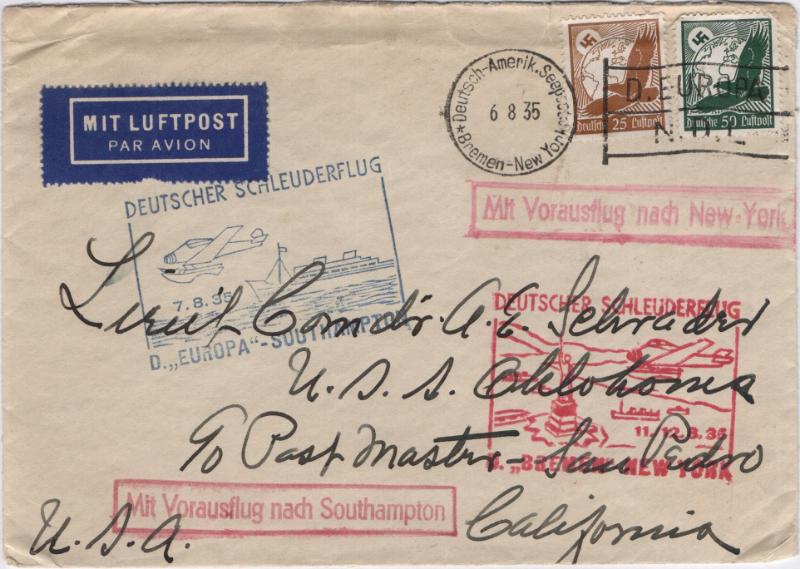 MIT LUFTPOST
PAR AVION
Deutsch-Amerik. Seepost
Bremen-New York
6 8 35
Deutsche 25 Luftpost
Deutsche 50 Luftpost
D. EUROPA
N.D.L.
DEUTSCHER SCHLEUDERFLUG
7.8.35
D. „EUROPA"-SOUTHAMPTON
Mit Vorausflug nach New-York
DEUTSCHER SCHLEUDERFLUG
11. 12.8.35
D. „BREMEN" NEW YORK
Lieut Comdr. A.E. Schrader
U.S.S. Oklohoma
c/o Post Master - San Pedro
California
U.S.A.
Mit Vorausflug nach Southampton